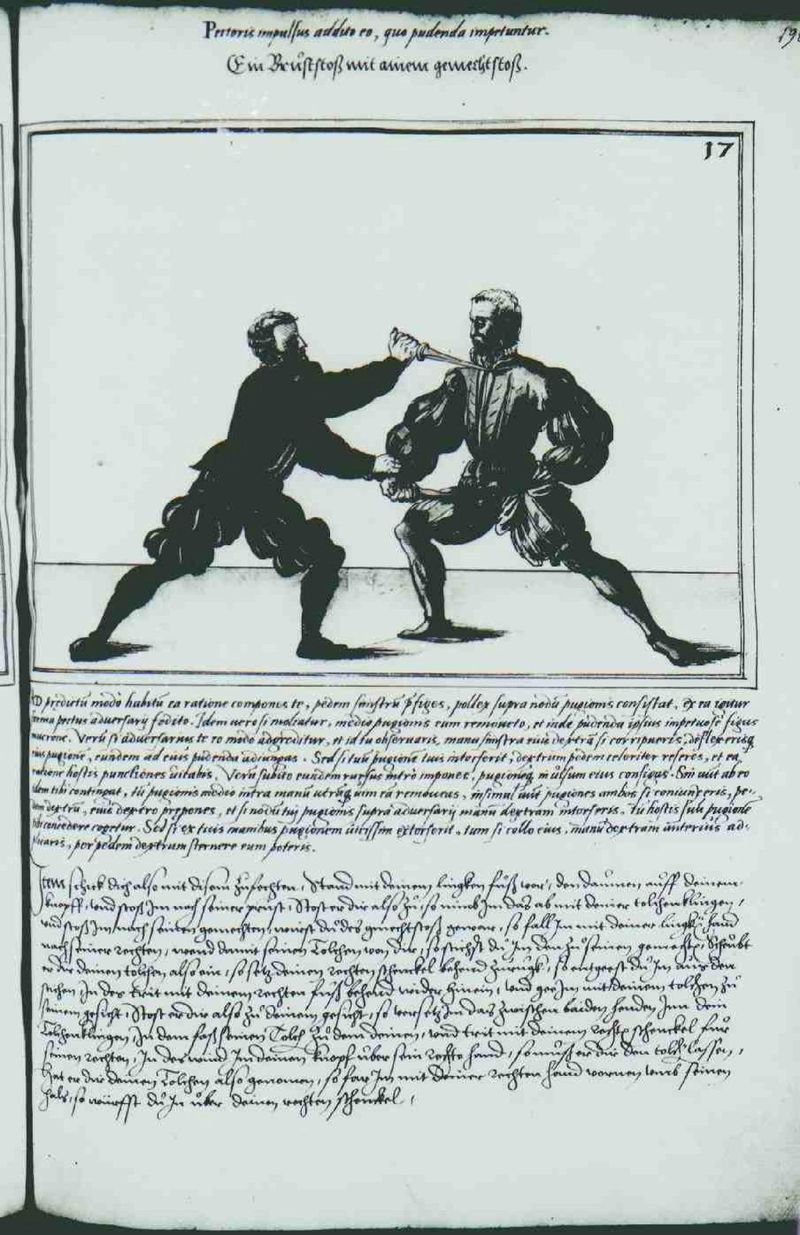 Pectoris impulsus addito eo, quo pudenda impetuntur.
Ein Bruststoß mit ainem gemechtstoß.
17
AD predictum modo habitum ea ratione compones te, pedem sinistrum p̄figes, pollex supra nodum pugionis consistat, ex ea igitur
pectus adversarij fodito. Idem vero si moliatur, medio pugionis eum removeto, et inde pudenda ipsius impetuose figas
mucrone. Verum si adversarius te eo modo adgreditur, et id tu observaris, manu sinistra eius dextram si corripueris, deflexerisq
eius pugionem, eundem ad eius pudenda adiungas. Sed si tuum pugionem tuis interserit, dextrum pedem celeriter referes, et ea
ratione hostis punctiones vitabis. Verum subito eundem rursus intro impone, pugionemq in vultum eius consigas. Sin aut ab eo
idem tibi contingat, tu pugionis medio intra manum utramq vim eam removeas, insimul aut pugiones ambos si coniunxeris, pe-
dem dextrum, eius dextro prepones, et si nodum tui pugionis supra adversarij manum dextram intorseris, tum hostis suum pugionem
tibi concedere cogetur. Sed si ex tuis manibus pugionem itidem extorserit, tum si collo eius manum dextram anterius ad-
plicaris, per pedem dextrum sternere eum poteris.
Item schick dich also mit disem zufechten, Stand mit deinem lingken fuß vor, den daumen auff deinem
knopff, und stoß Im nach seiner prust, Stost er dir also zu, so nimb Im das ab mit deiner tolchenklingen,
und stoß Im nach seinen gemechten, wirst du des gmechtstoß gewar, so fall Im mit deiner lingken hand
nach seiner rechten, wend damit seinen Tolchen von dir, so stichst du Im den zu seinen gemechte, Scheubt
er dir deinen tolchen also ein, so setz deinen rechten schenckel behend zurugk, so entgeest du Im aus den
stichen, In des trit mit deinem rechten fuß behend wider hinein, und gee Im mit deinem tolchen zu
seinem gesicht, Stost er dir also zu deinem gesicht, so versetz Im das zwischen baiden henden Inn dein
Tolchenklingen, In dem faß seinen Tolch zu dem deinen, und trit mit deinem rechten schenckel fur
seinen rechten, In des wind Im deinen knopf uber sein rechte hand, so muß er dir den tolch lassen,
hat er dir deinen Tolchen also genomen, so far Im mit deiner rechten hand vornen umb seinen
hals, so würffst du In uber deinen rechten schenckel,